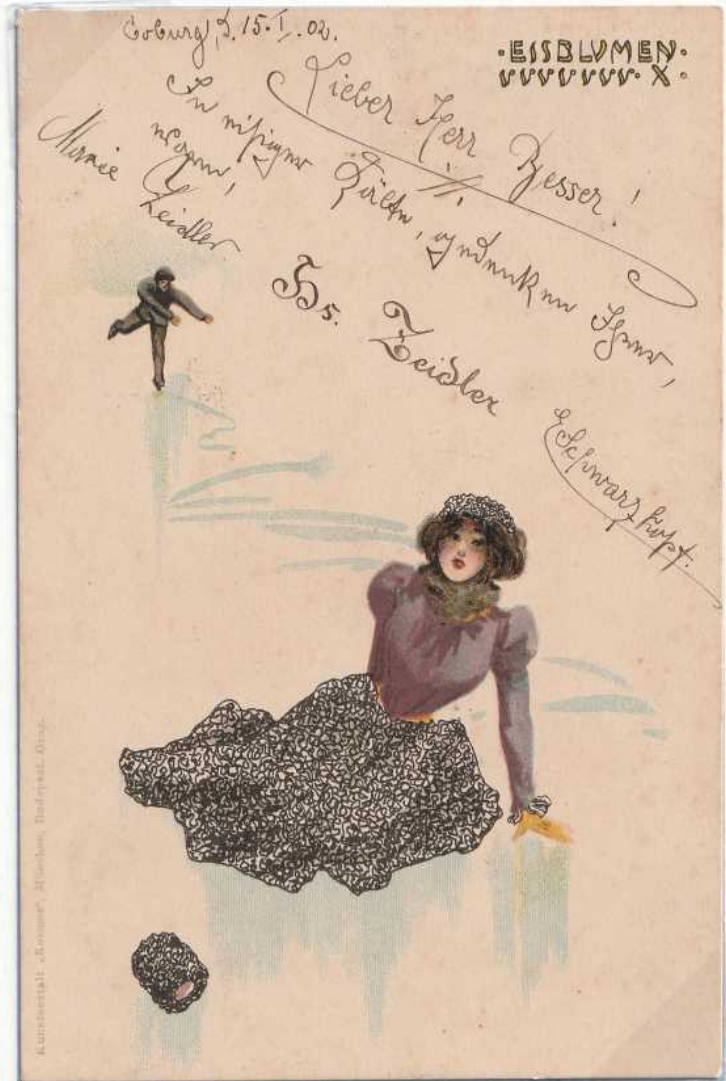 Coburg, d. 15. I. 02.
·EISBLUMEN·
X·
Lieber Herr Besser!
In eisiger Kälte, gedenken Ihrer,
Marie Zeidler
Hs. Zeidler
ESchwarzkopf.
Kunstanstalt „Kosmos“, München, Budapest, Graz.